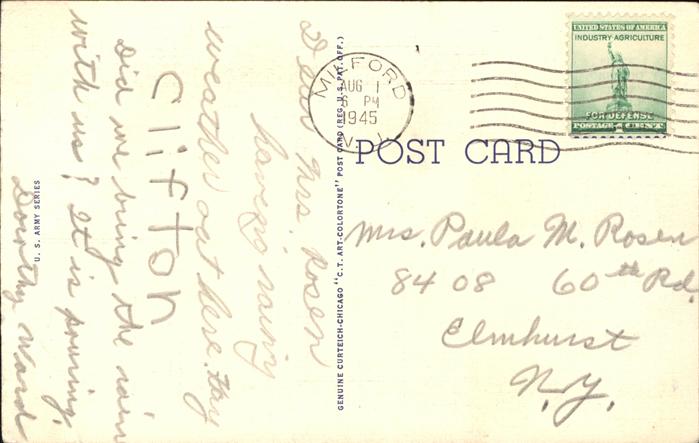 UNITED STATES OF AMERICA
INDUSTRY·AGRICULTURE
FOR DEFENSE
POSTAGE 1 CENT
MILFORD
AUG 1
PM
1945
POST CARD
Mrs. Paula M. Rosen
8408 60th Rd
Elmhurst
N.Y.
GENUINE CURTEICH-CHICAGO "C.T. ART-COLORTONE" POST CARD (REG. U.S. PAT. OFF.)
Dear Mrs. Rosen
haveing rainy
weather out here.
Clifton
Did we bring the rain
with us? It is pouring.
Dorothy Ward
U. S. ARMY SERIES